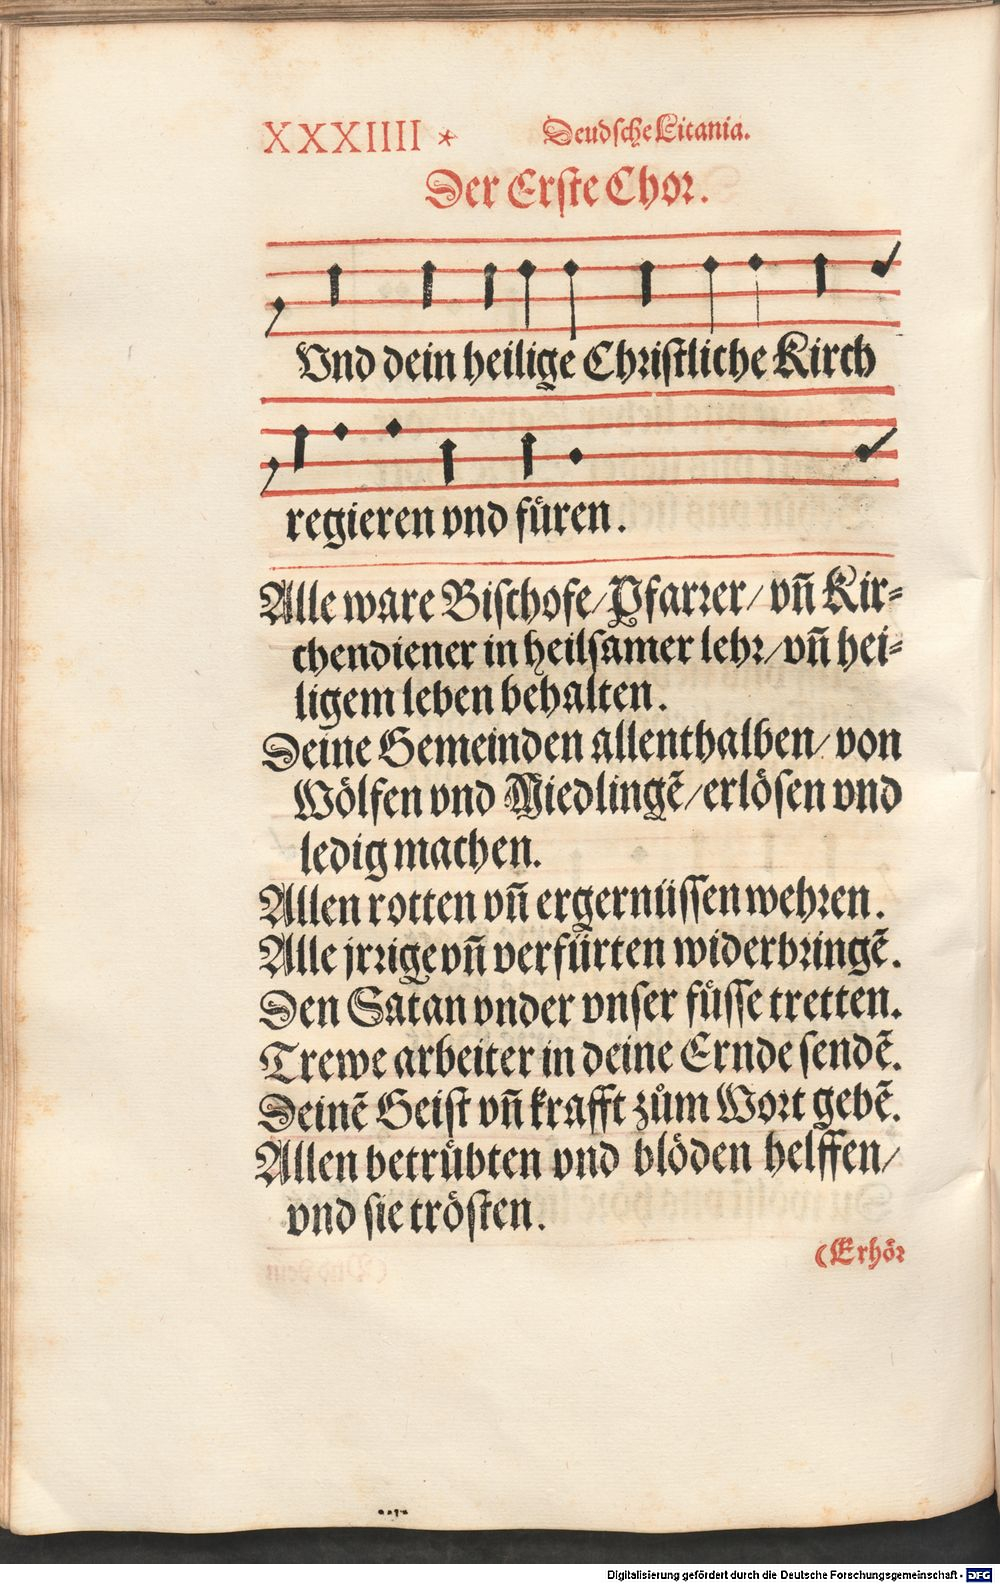 XXXIIII * Deudſche Litania.
Der Erſte Chor.
Vnd dein heilige Chriſtliche Kirch
regieren vnd fuͤren.
Alle ware Biſchofe/ Pfarrer/ vn̄ Kir=
chendiener in heilſamer lehr/ vn̄ hei=
ligem leben behalten.
Deine Gemeinden allenthalben/ von
Wölfen vnd Miedlingẽ/ erlöſen vnd
ledig machen.
Allen rotten vn̄ ergernüſſen wehren.
Alle jrrige vn̄ verfürten widerbringẽ.
Den Satan vnder vnſer fuͤſſe tretten.
Trewe arbeiter in deine Ernde ſendẽ.
Deinẽ Geiſt vn̄ krafft zuͦm Wort gebẽ.
Allen betruͤbten vnd blöden helffen/
vnd ſie tröſten.
(Erhör
Digitalisierung gefördert durch die Deutsche Forschungsgemeinschaft - DFG